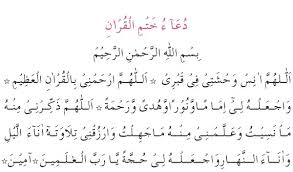 دُعَآءُ خَتْمِ الْقُرْاٰنِ
بِسْمِ اللّٰهِ الرَّحْمٰنِ الرَّحِيْمِ
اَللّٰهُمَّ اٰنِسْ وَحْشَتِىْ فِىْ قَبْرِىْ ۞ اَللّٰهُمَّ ارْحَمْنِىْ بِالْقُرْاٰنِ الْعَظِيْمِ ۞
وَاجْعَلْهُ لِىْ اِمَامًا وَّنُوْرًا وَّهُدًى وَّرَحْمَةً ۞ اَللّٰهُمَّ ذَكِّرْنِىْ مِنْهُ
مَا نَسِيْتُ وَعَلِّمْنِىْ مِنْهُ مَاجَهِلْتُ وَارْزُقْنِىْ تِلَاوَتَهٗ اٰنَآءَ الَّيْلِ
وَاٰنَآءَ النَّهَارِ وَاجْعَلْهُ لِىْ حُجَّةً يَّا رَبَّ الْعٰلَمِيْنَ ۞ اٰمِيْنَ ۞